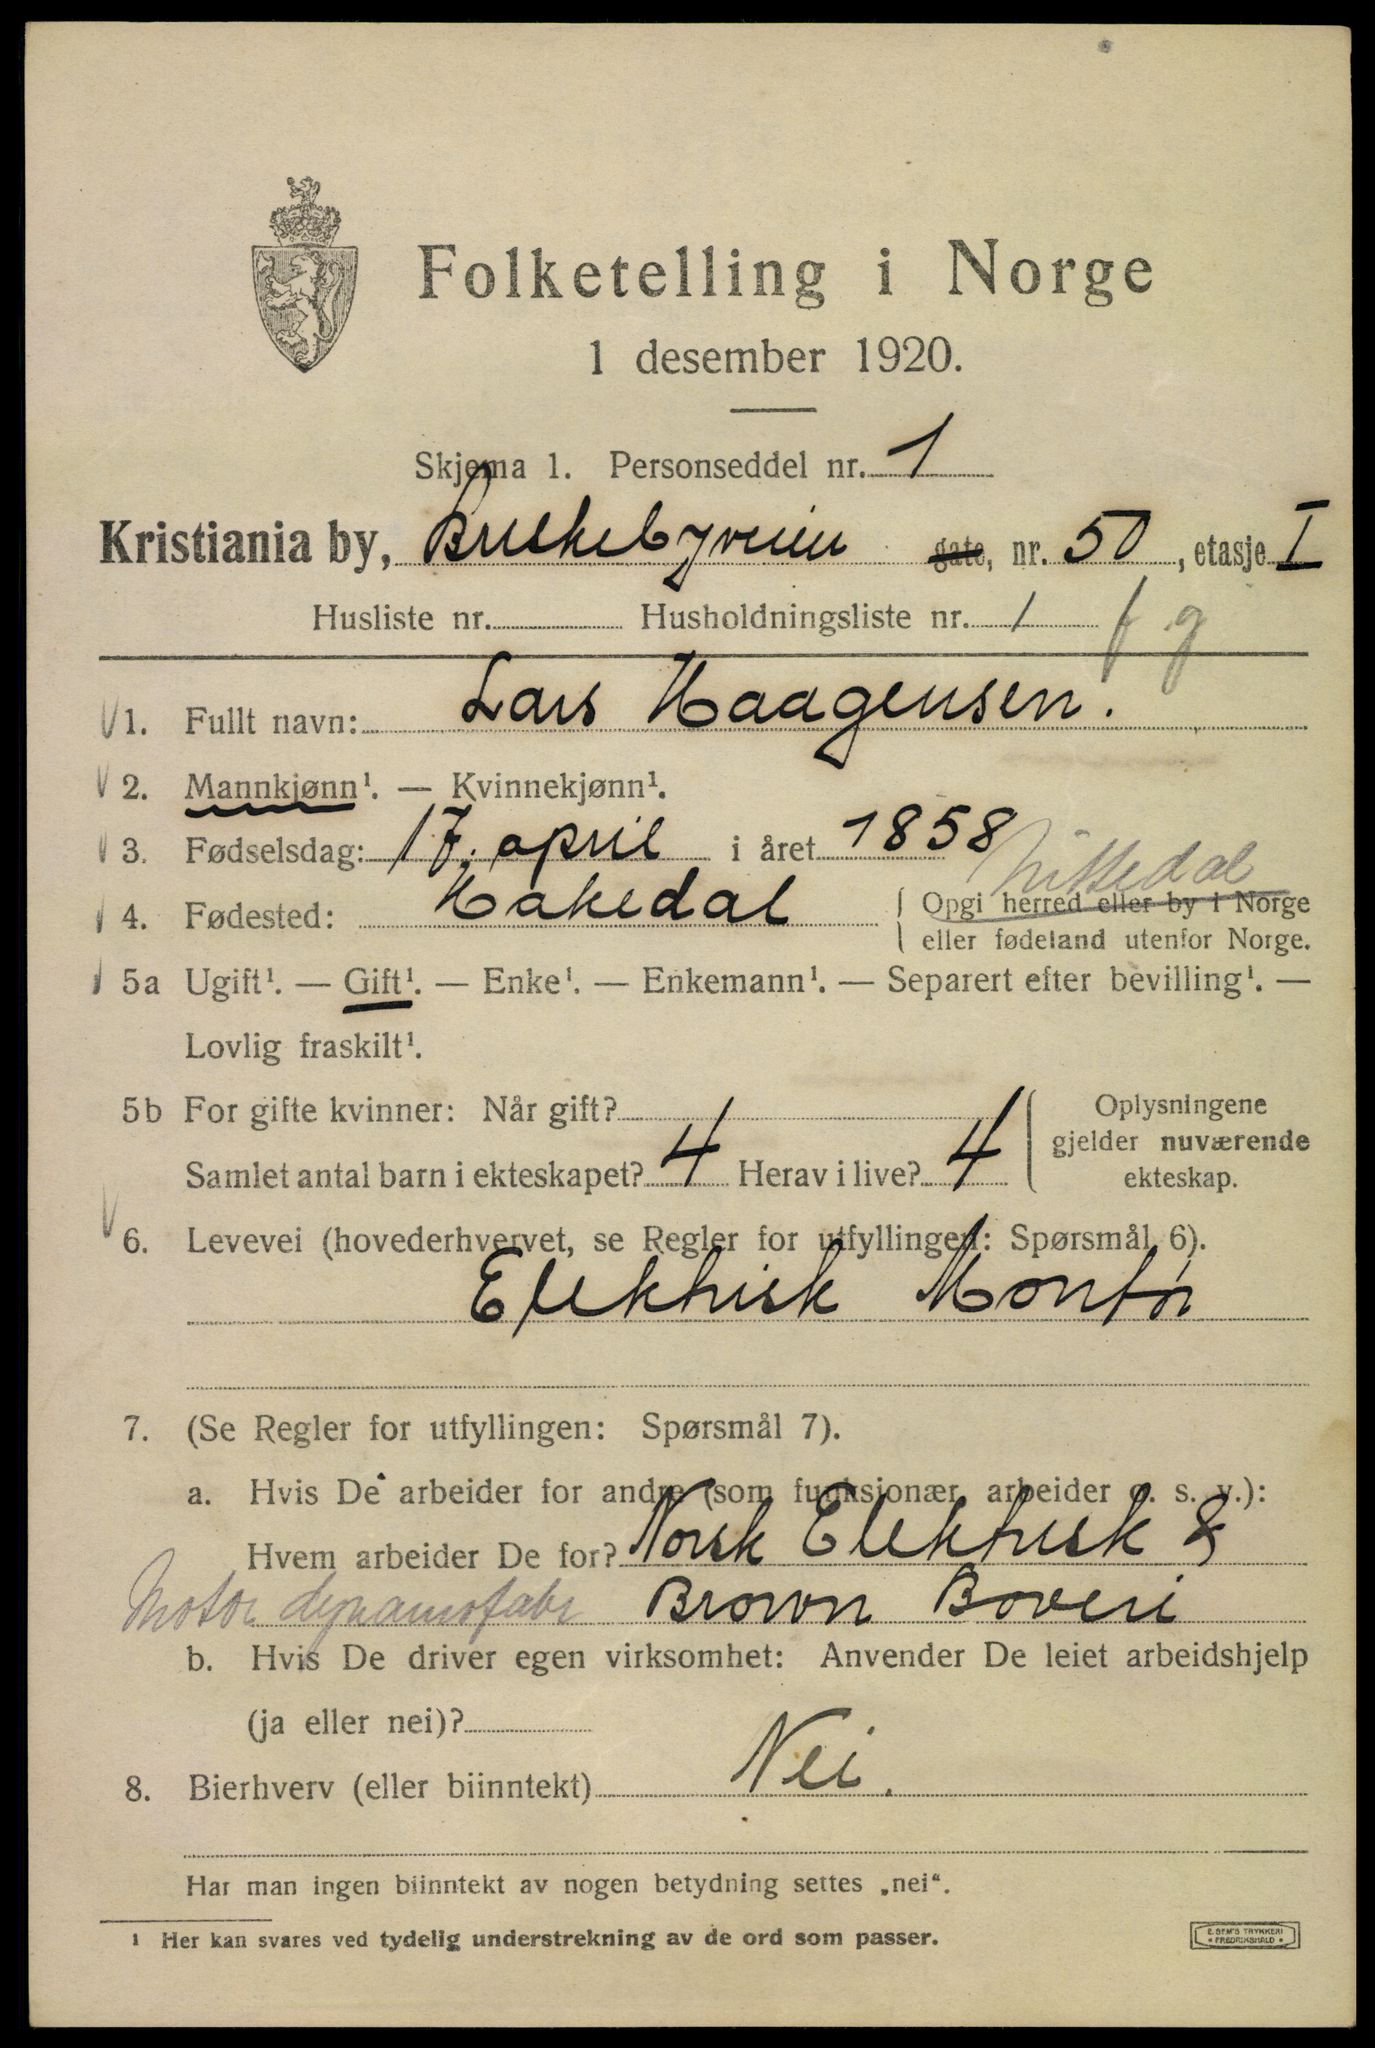 Folketelling i Norge
1 desember 1920.
Skjema 1. Personseddel nr. 1
Kristiania by, Briskebyveien gate, nr. 50, etasje I
Husliste nr. Husholdningsliste nr. 1 f g
1. Fullt navn: Lars Haagensen.
2. Mannkjønn¹. — Kvinnekjønn¹.
3. Fødselsdag: 17. april i året 1858
Nittedal
4. Fødested: Hakedal { Opgi herred eller by i Norge
eller fødeland utenfor Norge.
5a Ugift¹. — Gift¹. — Enke¹. — Enkemann¹. — Separert efter bevilling¹. —
Lovlig fraskilt¹.
5b For gifte kvinner: Når gift?
Samlet antal barn i ekteskapet? 4 Herav i live? 4
{ Oplysningene
gjelder nuværende
ekteskap.
6. Levevei (hovederhvervet, se Regler for utfyllingen: Spørsmål 6).
Elektrisk Montør
7. (Se Regler for utfyllingen: Spørsmål 7).
a. Hvis De arbeider for andre (som funksjonær, arbeider o. s. v.):
Hvem arbeider De for? Norsk Elektrisk &
Motor dynamofabr Brown Boveri
b. Hvis De driver egen virksomhet: Anvender De leiet arbeidshjelp
(ja eller nei)?
8. Bierhverv (eller biinntekt) Nei.
Har man ingen biinntekt av nogen betydning settes „nei“.
¹ Her kan svares ved tydelig understrekning av de ord som passer.
E. SEM'S TRYKKERI
• FREDRIKSHALD •